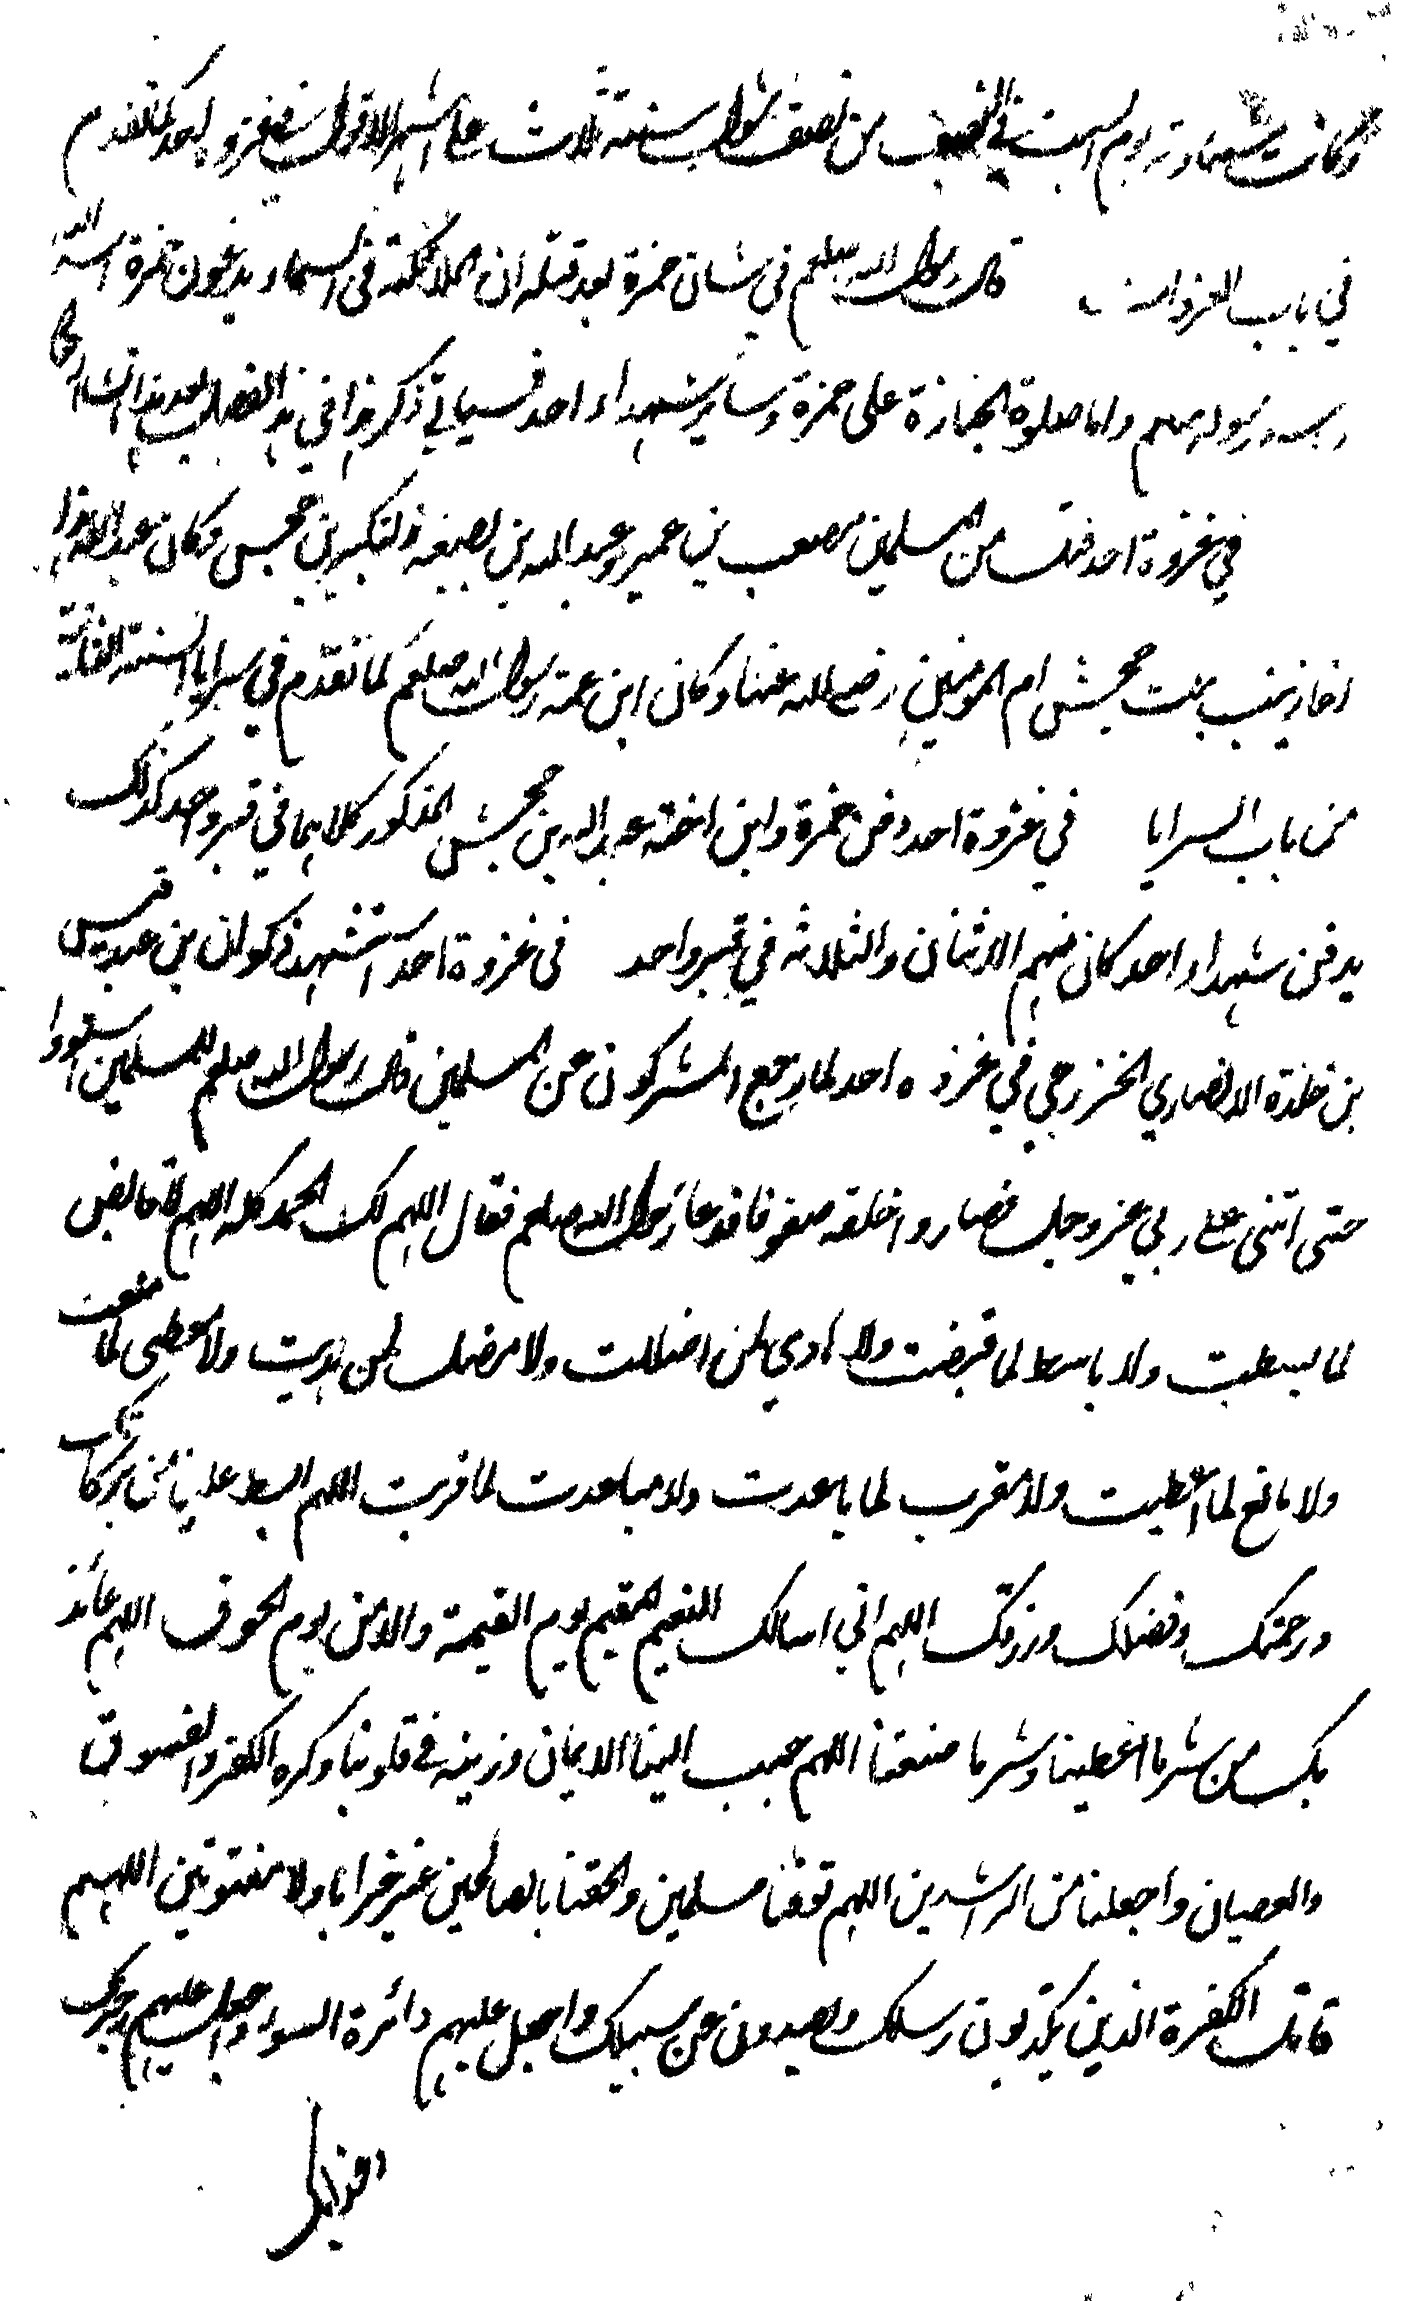 وكانت شهادته يوم السبت في النصف من نصف شوال سنة ثلاث على اشهر الاقوال في غزوة احد كما تقدم
في باب الغزوات قال رسول الله صلعم في شان حمزة بعد قتله ان الملائكة في السماء يدعون حمزة اسد الله
واسد رسوله صلعم واما صلوة الجنازة على حمزة وسائر شهداء احد فسياتي ذكرها في هذا الفصل بعد هذا ان شاء الله تعالى
في غزوة احد قتل من المسلمين مصعب بن عمير وعبد الله بن جحش وكان عبد الله هذا
اخا زينب بنت جحش ام المومنين رضي الله عنها وكان ابن عمة رسول الله صلعم كما تقدم في سرايا السنة الثانية
من باب السرايا في غزوة احد دفن حمزة وابن اخته عبد الله بن جحش المذكور كلاهما في قبر واحد كذلك
يدفن شهداء احد كان منهم الاثنان والثلاثة في قبر واحد في غزوة احد استشهد ذكوان بن عبد قيس
بن خلدة الانصاري الخزرجي في غزوة احد لما رجع المشركون عن المسلمين قال رسول الله صلعم للمسلمين استووا
حتى اثني على ربي عز وجل فصاروا خلفه صفوفا فدعا رسول الله صلعم فقال اللهم لك الحمد كله اللهم لا قابض
لما بسطت ولا باسط لما قبضت ولا هادي لمن اضللت ولا مضل لمن هديت ولا معطي لما منعت
ولا مانع لما اعطيت ولا مقرب لما باعدت ولا مباعدت لما قربت اللهم ابسط علينا من بركاتك
ورحمتك وفضلك ورزقك اللهم اني اسالك النعيم المقيم يوم القيمة والامن يوم الخوف اللهم عائذ
بك من شر ما اعطيتنا وشر ما منعتنا اللهم حبب الينا الايمان وزينه في قلوبنا وكره الكفر والفسوق
والعصيان واجعلنا من الراشدين اللهم توفنا مسلمين والحقنا بالصالحين غير خزايا ولا مفتونين اللهم
قاتل الكفرة الذين يكذبون رسلك ويصدون عن سبيلك واجعل عليهم دائرة السوء واجعل عليهم رجزك